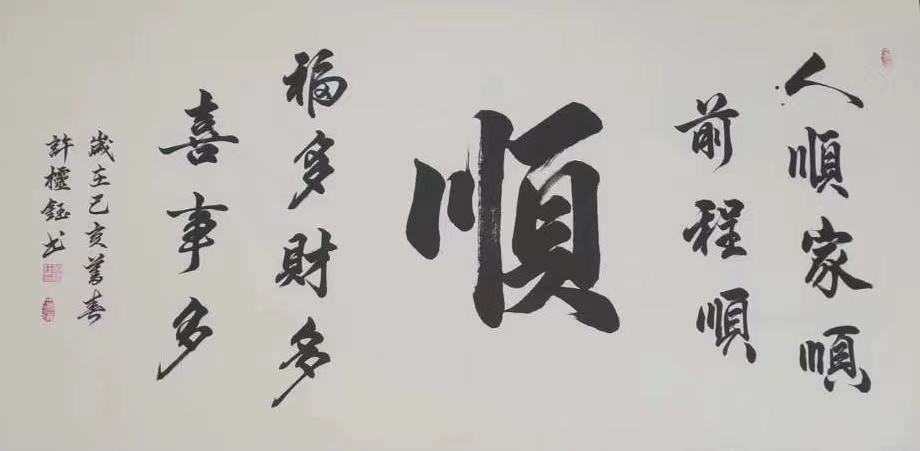 人順家順
前程順
順
福多財多
喜事多
歲在己亥
許櫺鈺书